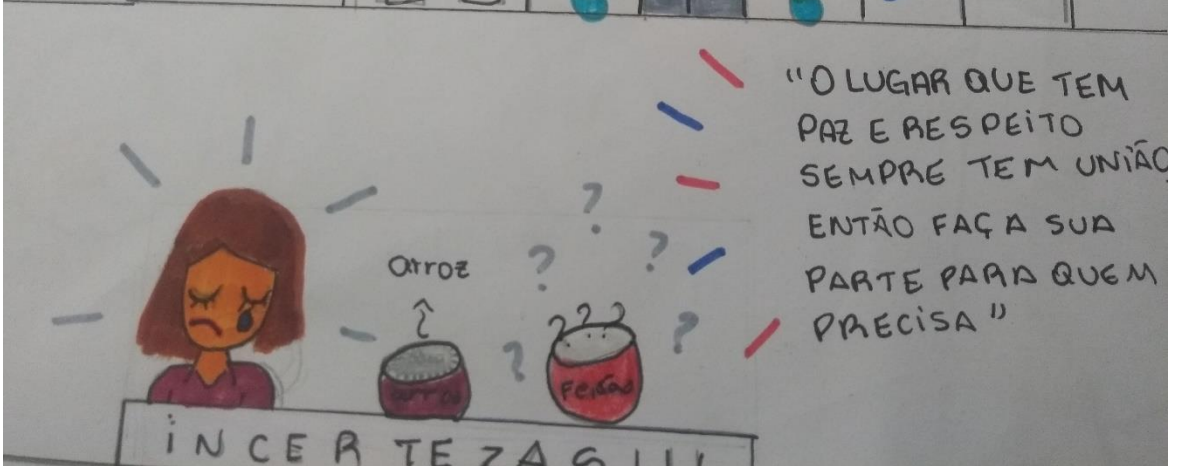 "O LUGAR QUE TEM
PAZ E RESPEITO
SEMPRE TEM UNIÃO
ENTÃO FAÇA SUA
PARTE PARA QUEM
PRECISA"
arroz
? ? ? ? ?
? ? ?
arroz
Feijão
INCERTEZAS!!!